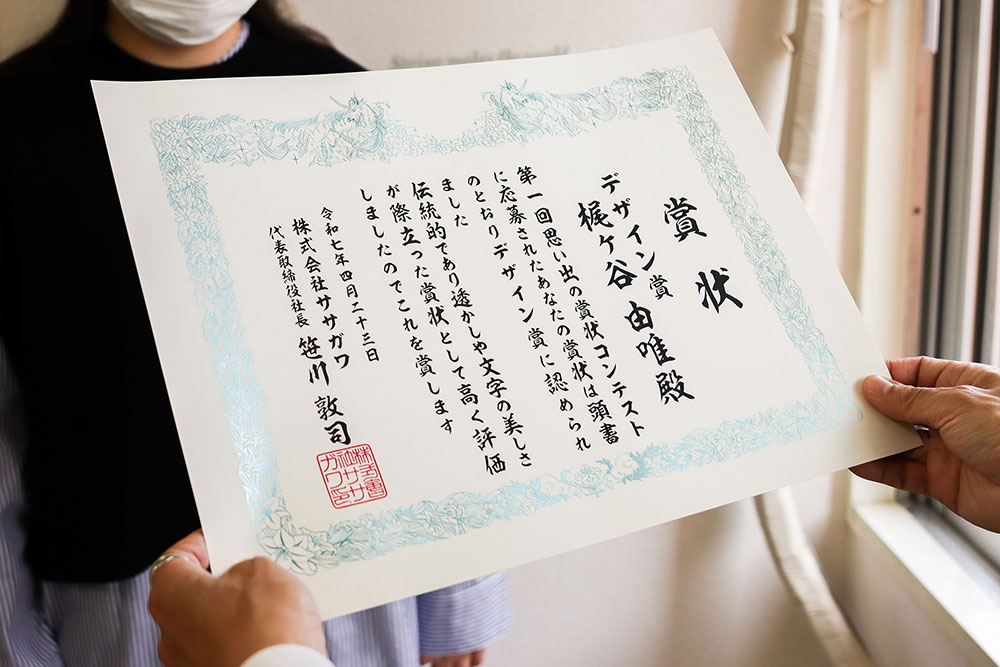 賞状
デザイン賞
梶ヶ谷由唯殿
第一回思い出の賞状コンテスト
に応募されたあなたの賞状は頭書
のとおりデザイン賞に認められ
ました
伝統的であり透かしや文字の美しさ
が際立った賞状として高く評価
しましたのでこれを賞します
令和七年四月二十三日
株式会社ササガワ
代表取締役社長 笹川敦司
株式會
社ササ
ガワ印